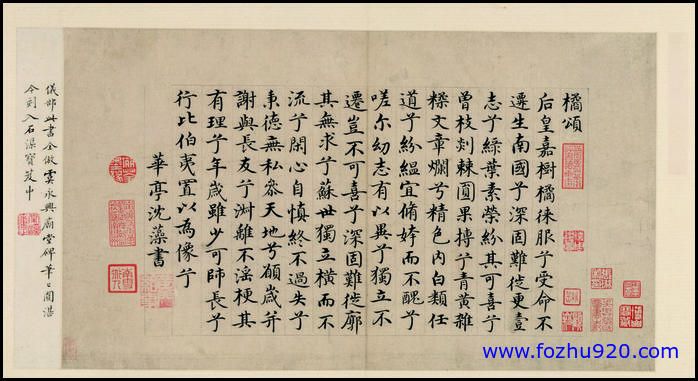 橘頌
后皇嘉樹橘徠服兮受命不
遷生南國兮深固難徙更壹
志兮綠葉素榮紛其可喜兮
曾枝剡棘圓果摶兮青黃雜
糅文章爛兮精色內白類任
道兮紛緼宜脩姱而不醜兮
嗟尔幼志有以異兮獨立不
遷豈不可喜兮深固難徙廓
其無求兮蘇世獨立橫而不
流兮閑心自慎終不過失兮
秉德無私參天地兮願歲并
謝與長友兮淑離不淫梗其
有理兮年歲雖少可師長兮
行比伯夷置以為像兮
華亭沈藻書
儀部此書全倣虞永興廟堂碑筆筆圓湛
今刻入石渠寶笈中
www.fozhu920.com